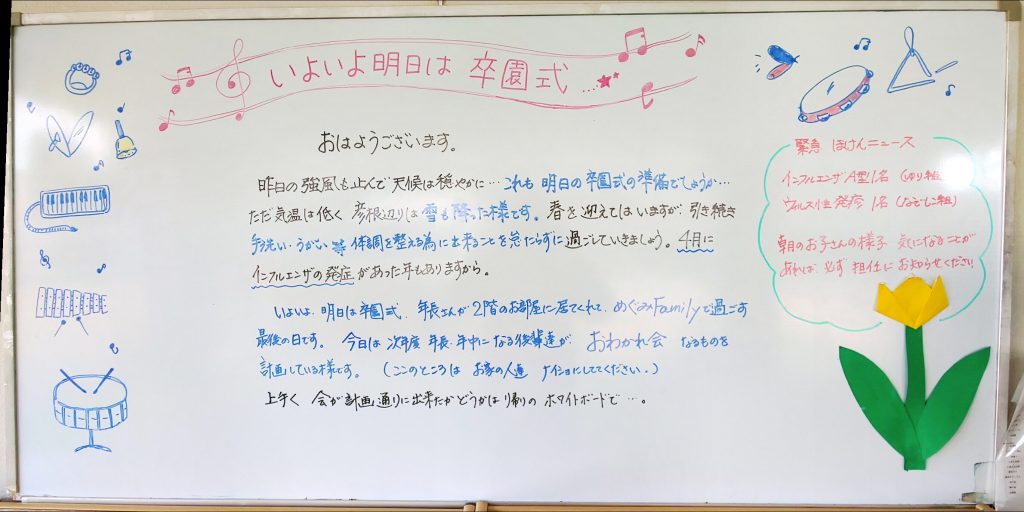 いよいよ明日は 卒園式…
おはようございます。
昨日の強風も止んで天候は穏やかに… これも 明日の卒園式の準備でしょうか…
ただ気温は低く 彦根辺りは雪も降った様です。春を迎えてはいますが 引き続き
手洗い・うがい 等 体調を整える為に出来ることを怠たらずに過ごしていきましょう。4月に
インフルエンザの発症があった年もありますから。
いよいよ、明日は卒園式、年長さんが2階のお部屋に居てくれて、めぐみFamilyで過ごす
最後の日です。 今日は 次年度 年長・年中になる後輩達が おわかれ会 なるものを
計画している様です。 (ここのところは お家の人達 ナイショにしてください。)
上手く 会が計画通りに出来たかどうかは 帰りの ホワイトボードで…。
緊急 ほけんニュース
インフルエンザA型1名 (ゆり組)
ウィルス性発疹 1名 (なでしこ組)
朝のお子さんの様子 気になることが
あれば 必ず 担任に お知らせください